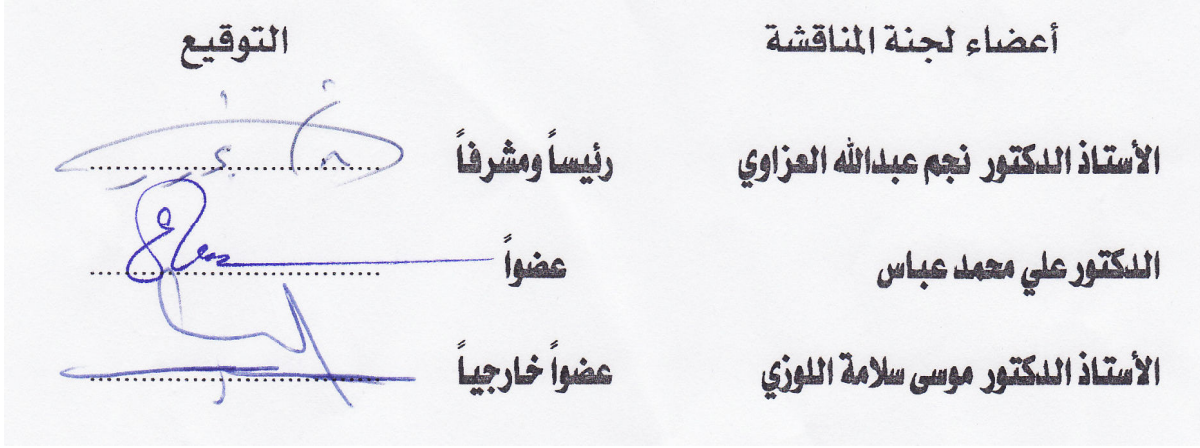 أعضاء لجنة المناقشة التوقيع
الأستاذ الدكتور نجم عبدالله العزاوي رئيساً ومشرفاً ..............................
الدكتور علي محمد عباس عضواً ..............................
الأستاذ الدكتور موسى سلامة اللوزي عضواً خارجياً ..............................